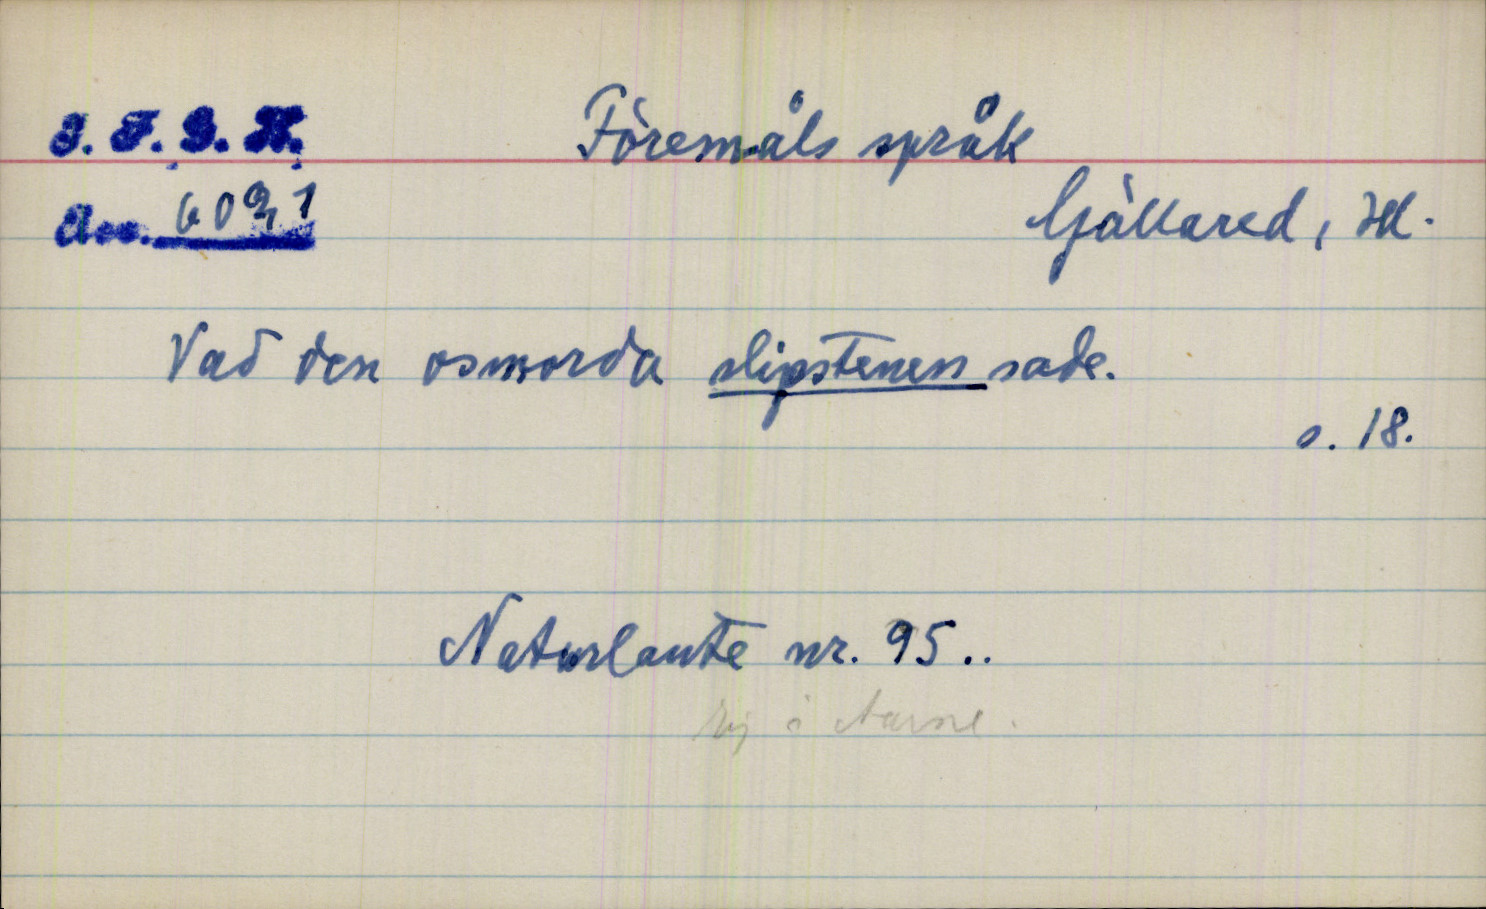 I. F. G. H.
Föremåls språk
Acc. 6021
Gällared, Hl.
Vad den osmorda slipstenen sade.
s. 18.
Naturlaute nr. 95..
Ej i Aarne.